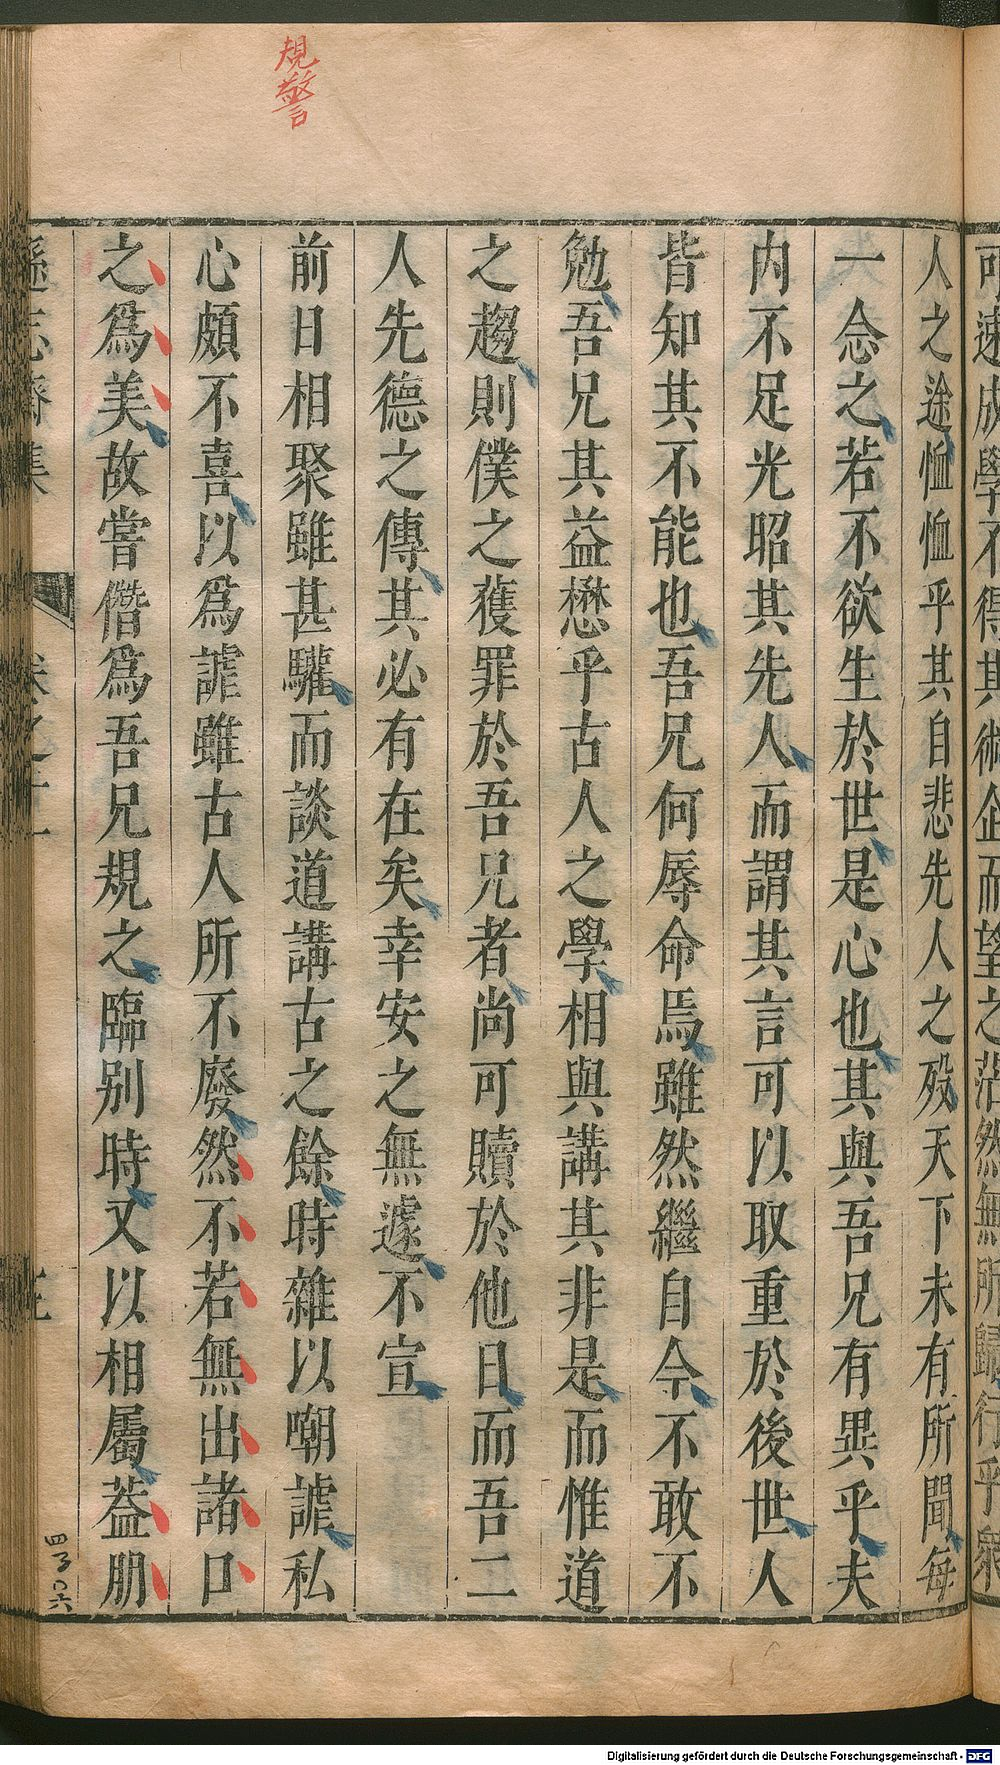 規警
可速成學不得其術企而望之茫然無所歸行乎眾
人之途恤恤乎其自悲先人之歿天下未有所聞每
一念之若不欲生於世是心也其與吾兄有異乎夫
內不足光昭其先人而謂其言可以取重於後世人
皆知其不能也吾兄何辱命焉雖然繼自今不敢不
勉吾兄其益懋乎古人之學相與講其非是而惟道
之趨則僕之獲罪於吾兄者尚可贖於他日而吾二
人先德之傳其必有在矣幸安之無遽不宣
前日相聚雖甚驩而談道講古之餘時雜以嘲謔私
心頗不喜以為謔雖古人所不廢然不若無出諸口
之為美故嘗僭為吾兄規之臨別時又以相屬葢朋
遜志齋集 卷之十一
Digitalisierung gefördert durch die Deutsche Forschungsgemeinschaft - DFG